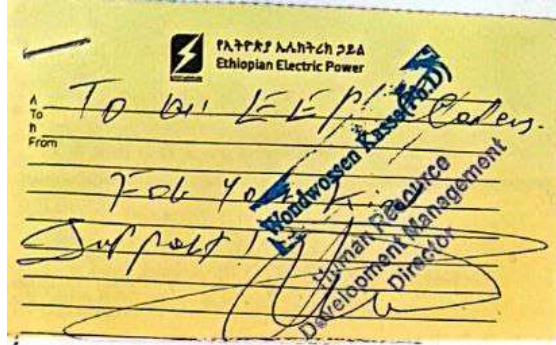 የኢትዮጵያ ኤሌክትሪክ ኃይል
Ethiopian Electric Power
ለ
To
To all EEP
ከ
From
For Your Kind
Support!
Wondwossen Kasse (Ph.D)
Human Resource
Development Management
Director